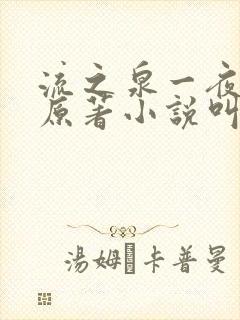 流之泉一夜
原著小說叫
湯姆·卡普曼